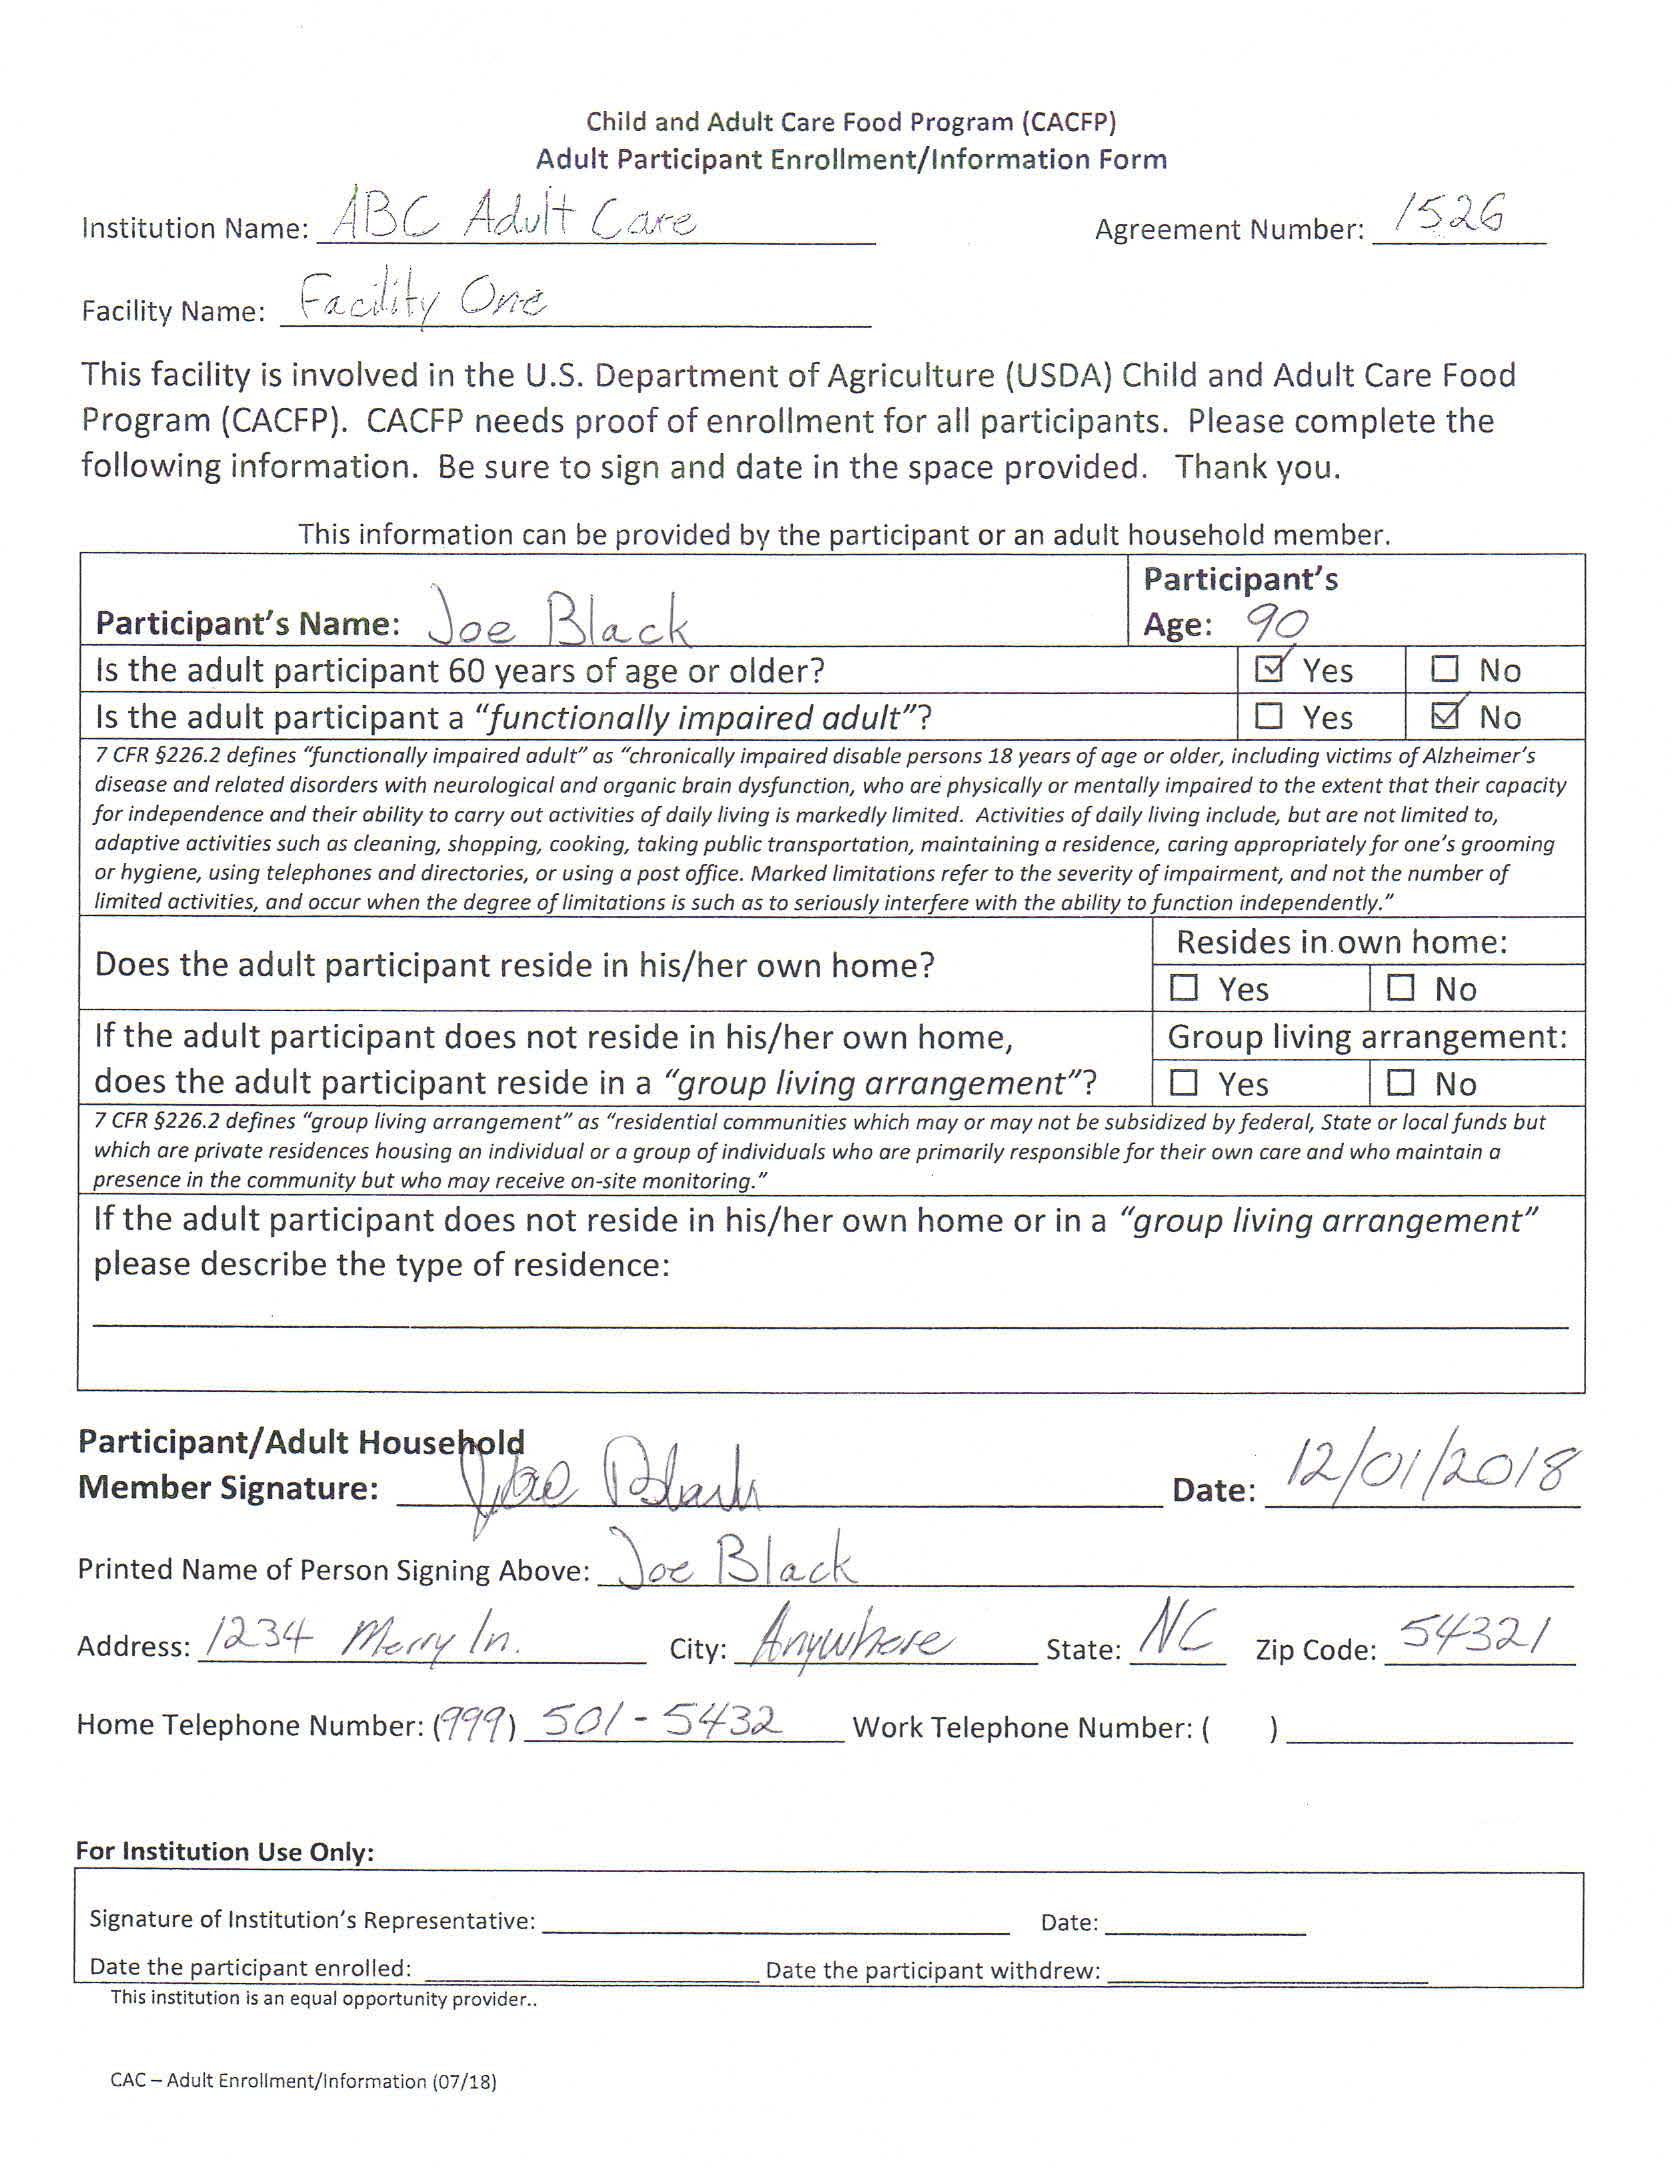 Child and Adult Care Food Program (CACFP)
Adult Participant Enrollment/Information Form
Institution Name: ABC Adult Care Agreement Number: 1526
Facility Name: Facility One
This facility is involved in the U.S. Department of Agriculture (USDA) Child and Adult Care Food
Program (CACFP). CACFP needs proof of enrollment for all participants. Please complete the
following information. Be sure to sign and date in the space provided. Thank you.
This information can be provided by the participant or an adult household member.
Participant's Name: Joe Black
Participant's
Age: 90
Is the adult participant 60 years of age or older? ☑ Yes ☐ No
Is the adult participant a "functionally impaired adult"? ☐ Yes ☑ No
7 CFR §226.2 defines "functionally impaired adult" as "chronically impaired disable persons 18 years of age or older, including victims of Alzheimer's
disease and related disorders with neurological and organic brain dysfunction, who are physically or mentally impaired to the extent that their capacity
for independence and their ability to carry out activities of daily living is markedly limited. Activities of daily living include, but are not limited to,
adaptive activities such as cleaning, shopping, cooking, taking public transportation, maintaining a residence, caring appropriately for one's grooming
or hygiene, using telephones and directories, or using a post office. Marked limitations refer to the severity of impairment, and not the number of
limited activities, and occur when the degree of limitations is such as to seriously interfere with the ability to function independently."
Does the adult participant reside in his/her own home?
Resides in own home:
☐ Yes ☐ No
If the adult participant does not reside in his/her own home,
does the adult participant reside in a "group living arrangement"?
Group living arrangement:
☐ Yes ☐ No
7 CFR §226.2 defines "group living arrangement" as "residential communities which may or may not be subsidized by federal, State or local funds but
which are private residences housing an individual or a group of individuals who are primarily responsible for their own care and who maintain a
presence in the community but who may receive on-site monitoring."
If the adult participant does not reside in his/her own home or in a "group living arrangement"
please describe the type of residence:
Participant/Adult Household
Member Signature: Joe Black Date: 12/01/2018
Printed Name of Person Signing Above: Joe Black
Address: 1234 Merry ln. City: Anywhere State: NC Zip Code: 54321
Home Telephone Number: (999) 501-5432 Work Telephone Number: ( )
For Institution Use Only:
Signature of Institution's Representative: Date:
Date the participant enrolled: Date the participant withdrew:
This institution is an equal opportunity provider..
CAC – Adult Enrollment/Information (07/18)